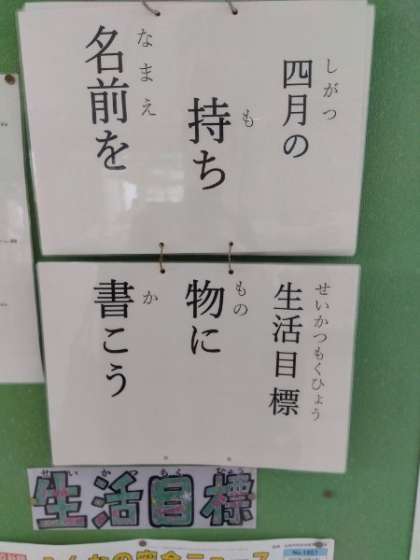 四月の
しがつ
生活目標
せいかつもくひょう
持ち
も
物に
もの
名前を
なまえ
書こう
か
生活目標
せいかつもくひょう